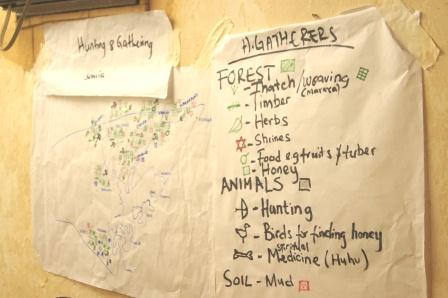 Hunting & Gathering
H.GATHERERS
FOREST
Thatch/weaving
(maraxa)
- Timber
- Herbs
- Shrines
- Food e.g fruits & tuber
- Honey
ANIMALS
- Hunting
- Birds for finding honey
- Medicine (Huhu)
SOIL - Mud